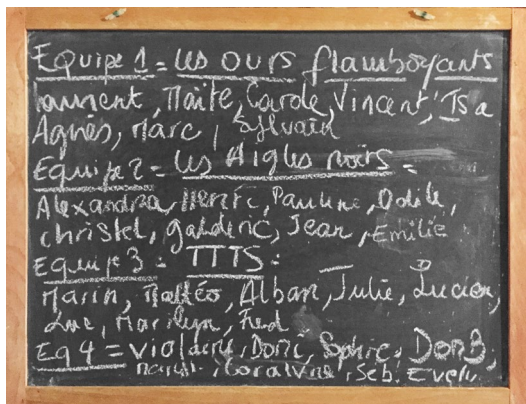 Equipe 1 = les ours flamboyants
Laurent, Maïté, Carole, Vincent, Isa
Agnès, Marc, Sylvain
Equipe 2 = les Aigles noirs =
Alexandra, Pauline, Odile,
christel, galderic, Jean, Emilie
Equipe 3 = TTTS =
Marin, Mattéo, Alban, Julie, Lucien,
Luc, Marilyn, Fred
Eq 4 = Violaine, Domi, Sophie,
Coraline, Seb.